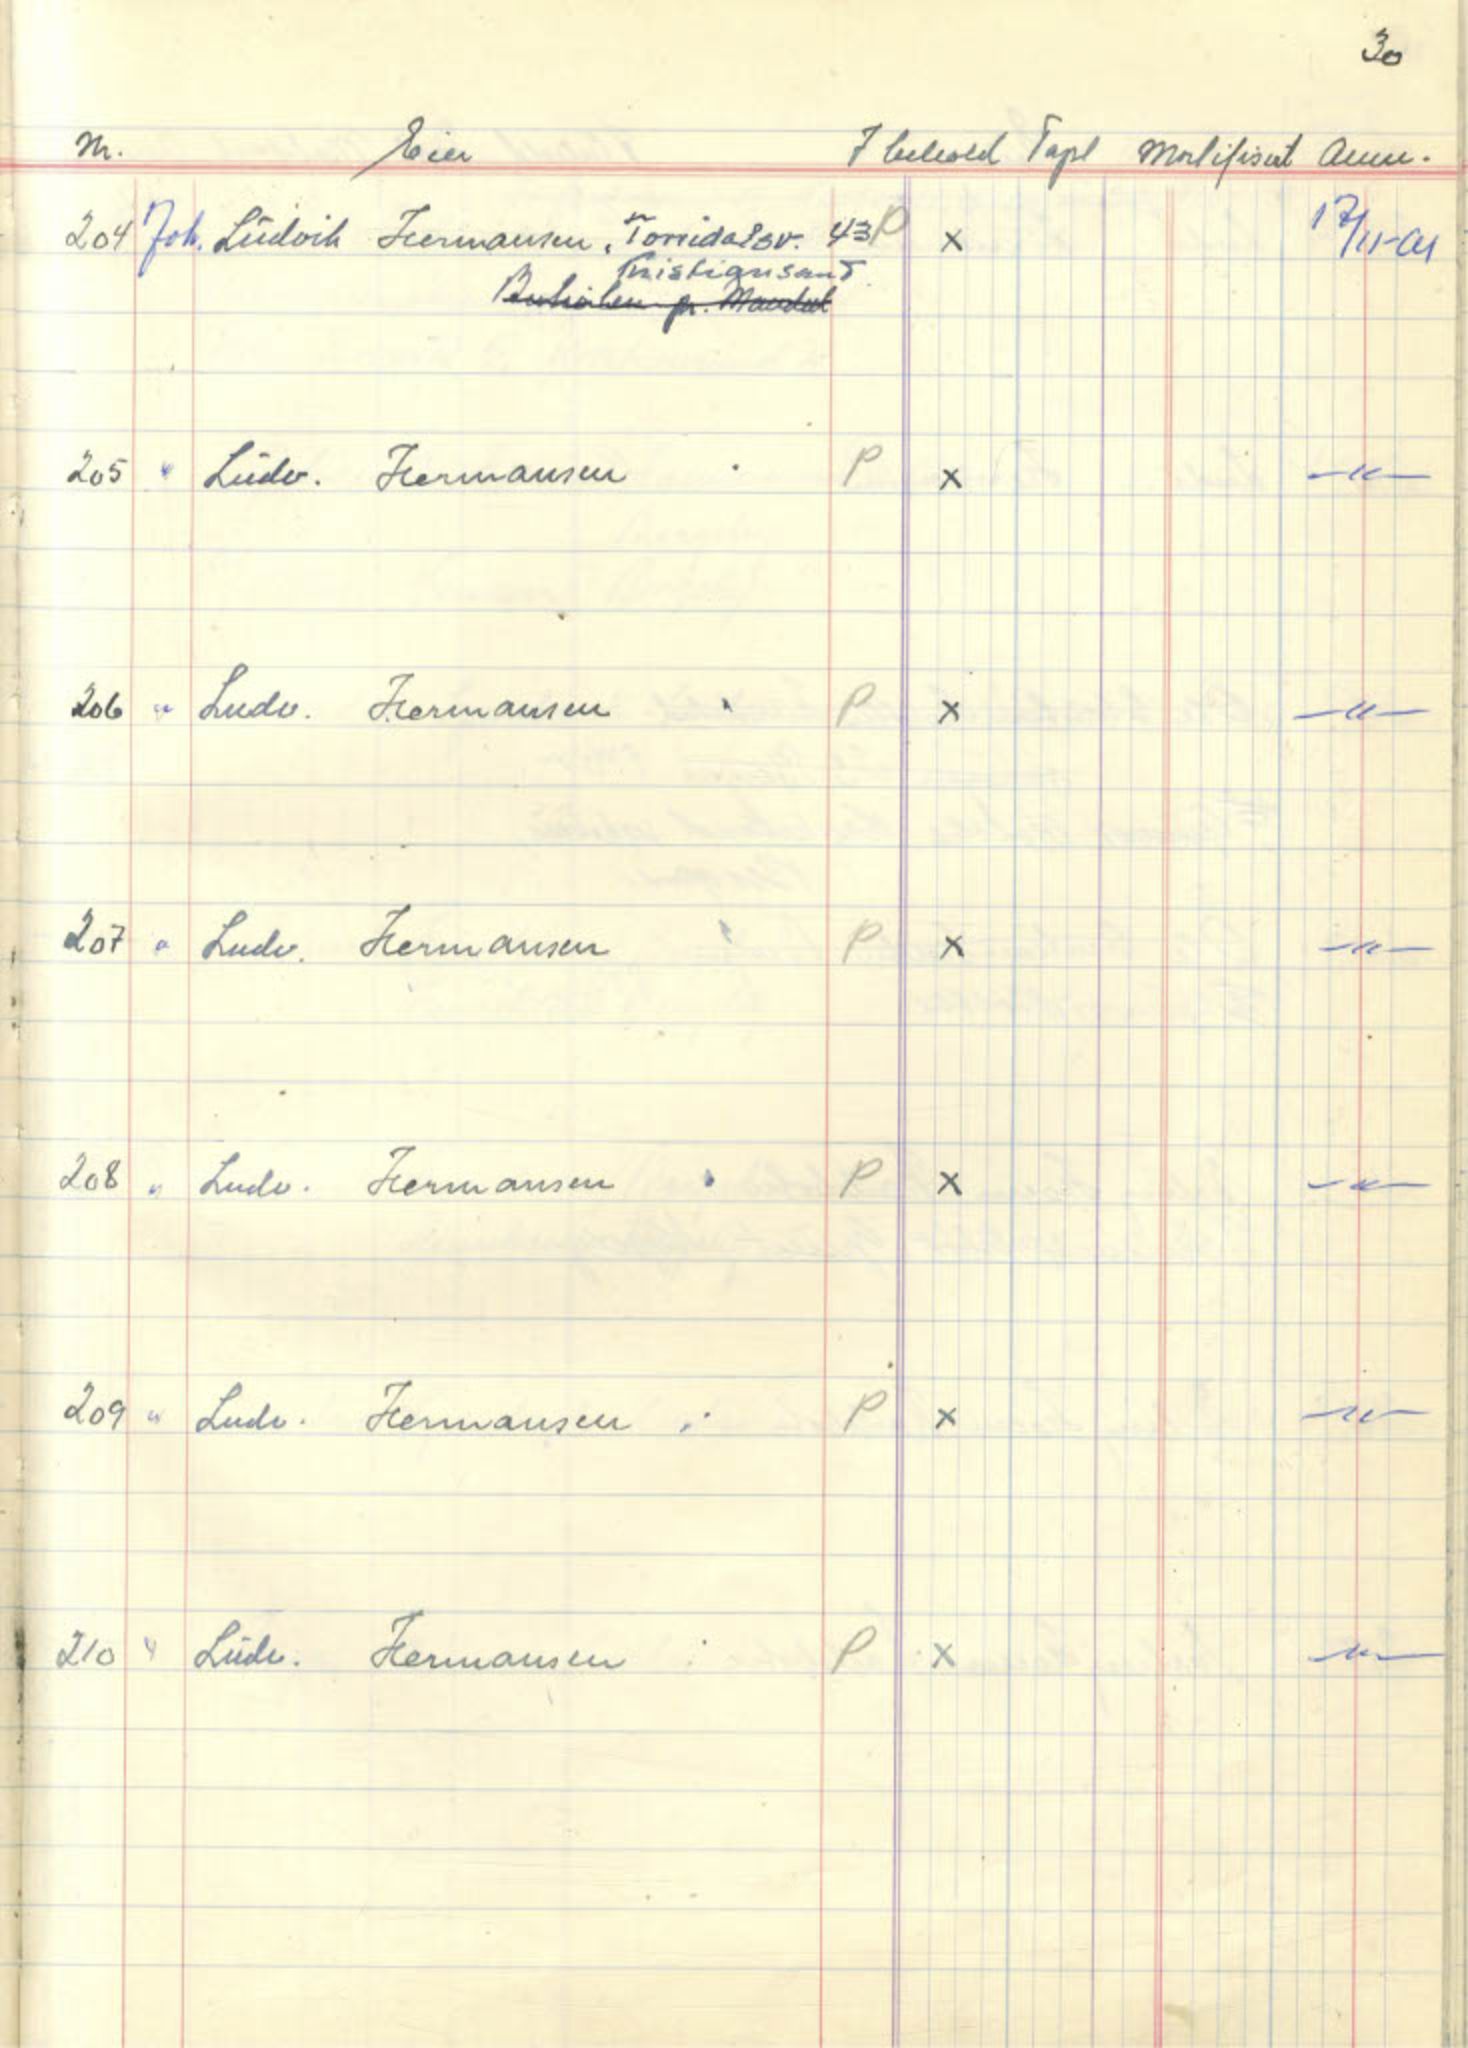 30
Nr. Eier I behold Tapt Mortifisert Anm.
204 Joh. Lūdvik Hermansen, Torridalsv. 43 P x 17/11-
Kristiansand
pr. Mandal
205 " Lūdv. Hermansen P x —"—
206 " Ludv. Hermansen P x —"—
207 " Ludv. Hermansen P x —"—
208 " Ludv. Hermansen P x —"—
209 " Ludv. Hermansen P x —"—
210 " Lūdv. Hermansen P x —"—